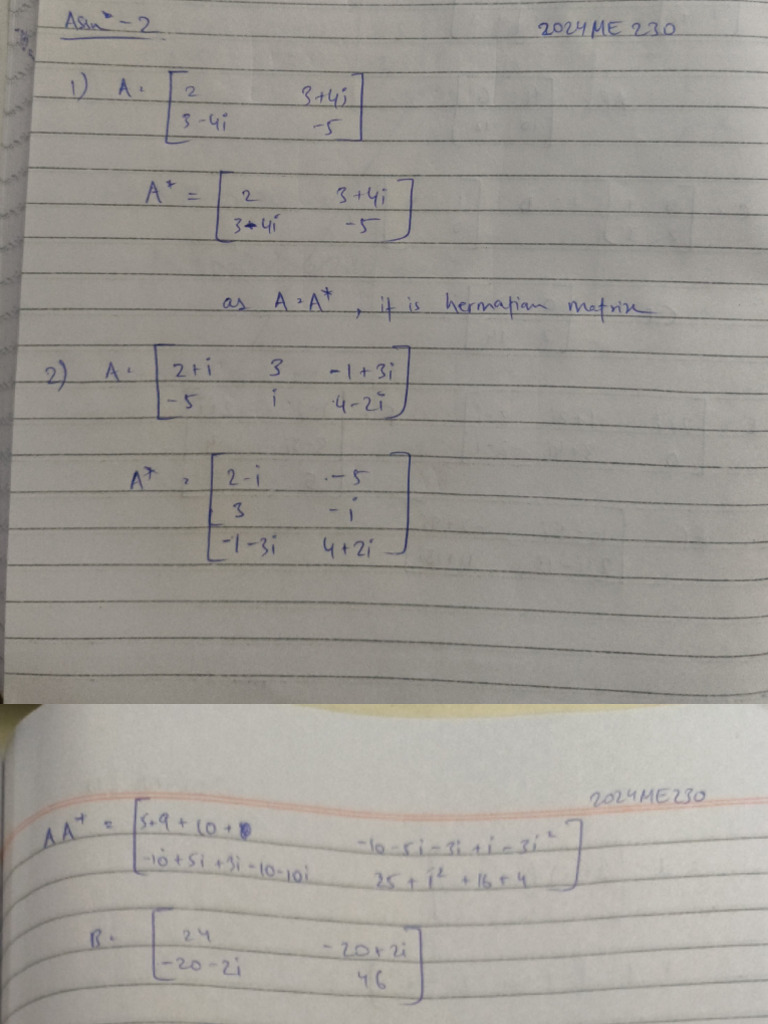 Assnᵗ - 2 2024ME230
1) A = [ 2 3+4i
3-4i -5 ]
A* = [ 2 3+4i
3-4i -5 ]
as A = A*, it is hermatian matrix
2) A = [ 2+i 3 -1+3i
-5 i 4-2i ]
A* = [ 2-i -5
3 -i
-1-3i 4+2i ]
2024ME230
AA* = [ 5+9+10+0 -10-5i-3i+i-3i²
-10+5i+3i-10-10i 25+i²+16+4 ]
B = [ 24 -20+2i
-20-2i 46 ]